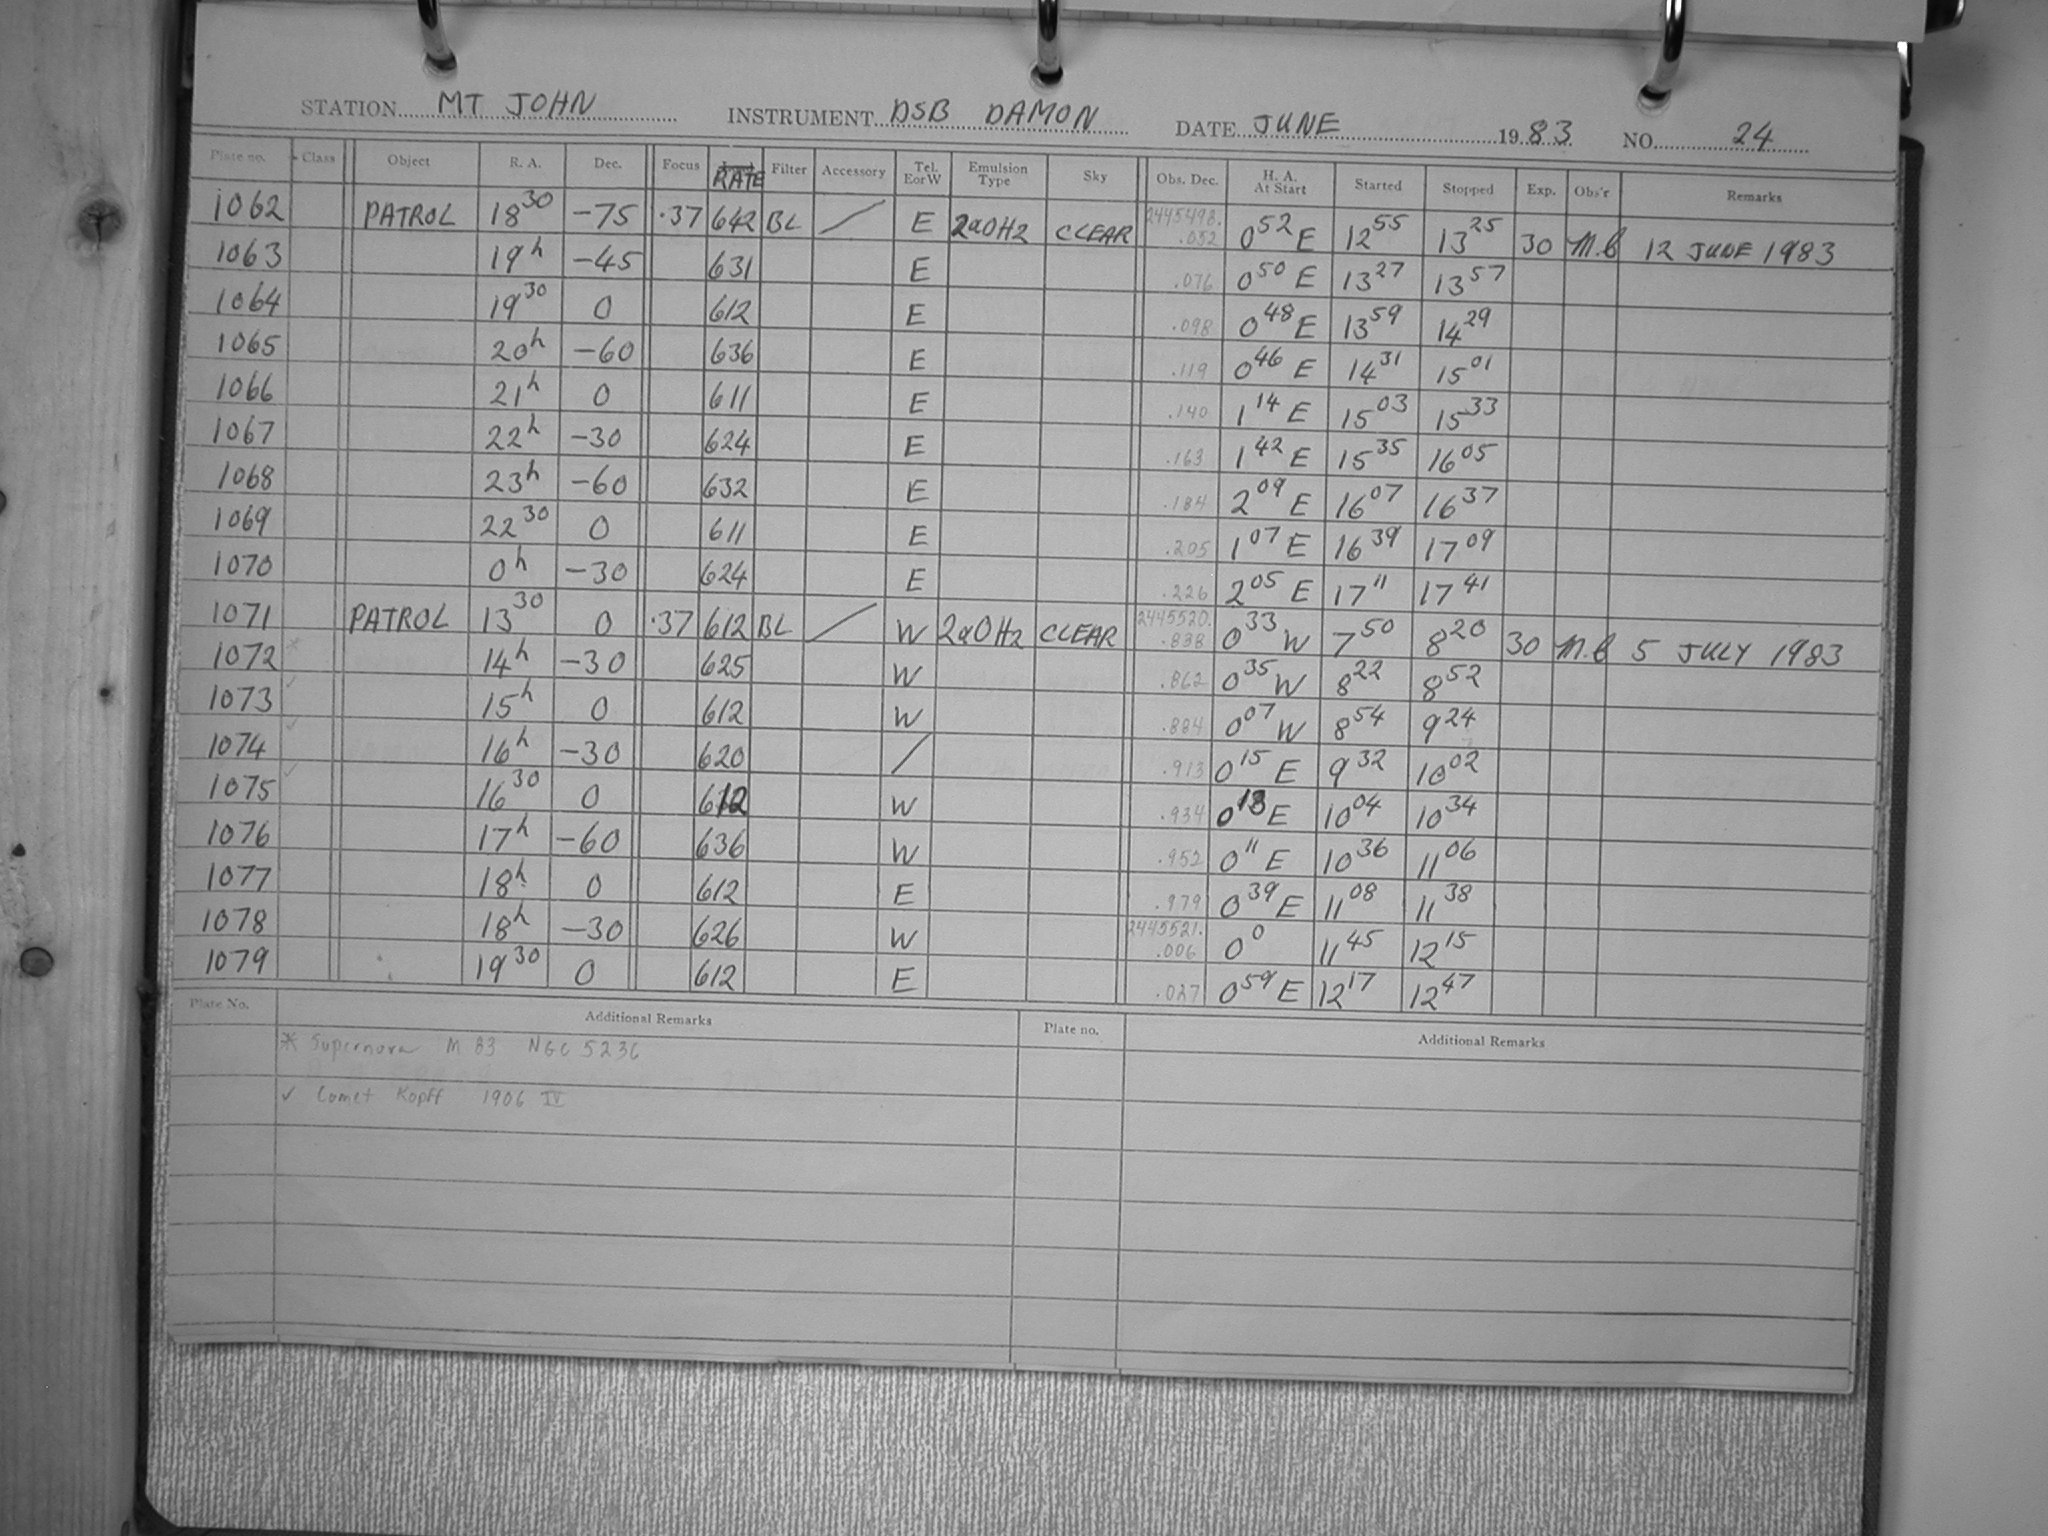 STATION MT JOHN INSTRUMENT DSB DAMON DATE JUNE 1983 NO. 24
Plate no. Class Object R. A. Dec. Focus RATE Filter Accessory Tel. E or W Emulsion Type Sky Obs. Dec. H. A. At Start Started Stopped Exp. Obs'r Remarks
1062 PATROL 18 30 -75 .37 642 BL / E 2aOH2 CLEAR 2445498. .052 0 52 E 12 55 13 25 30 M.C 12 JUNE 1983
1063 19 h -45 631 E .076 0 50 E 13 27 13 57
1064 19 30 0 612 E .098 0 48 E 13 59 14 29
1065 20 h -60 636 E .119 0 46 E 14 31 15 01
1066 21 h 0 611 E .140 1 14 E 15 03 15 33
1067 22 h -30 624 E .163 1 42 E 15 35 16 05
1068 23 h -60 632 E .184 2 09 E 16 07 16 37
1069 22 30 0 611 E .205 1 07 E 16 39 17 09
1070 0 h -30 624 E .226 2 05 E 17 11 17 41
1071 PATROL 13 30 0 .37 612 BL / W 2aOH2 CLEAR 2445520. .838 0 33 W 7 50 8 20 30 M.C 5 JULY 1983
1072 * 14 h -30 625 W .862 0 35 W 8 22 8 52
1073 ✓ 15 h 0 612 W .884 0 07 W 8 54 9 24
1074 ✓ 16 h -30 620 / .913 0 15 E 9 32 10 02
1075 ✓ 16 30 0 612 W .934 0 13 E 10 04 10 34
1076 17 h -60 636 W .952 0 11 E 10 36 11 06
1077 18 h 0 612 E .979 0 39 E 11 08 11 38
1078 18 h -30 626 W 2445521. .006 0 0 11 45 12 15
1079 19 30 0 612 E .027 0 59 E 12 17 12 47
Plate No. Additional Remarks Plate no. Additional Remarks
* Supernova M 83 NGC 5236
✓ Comet Kopff 1906 IV